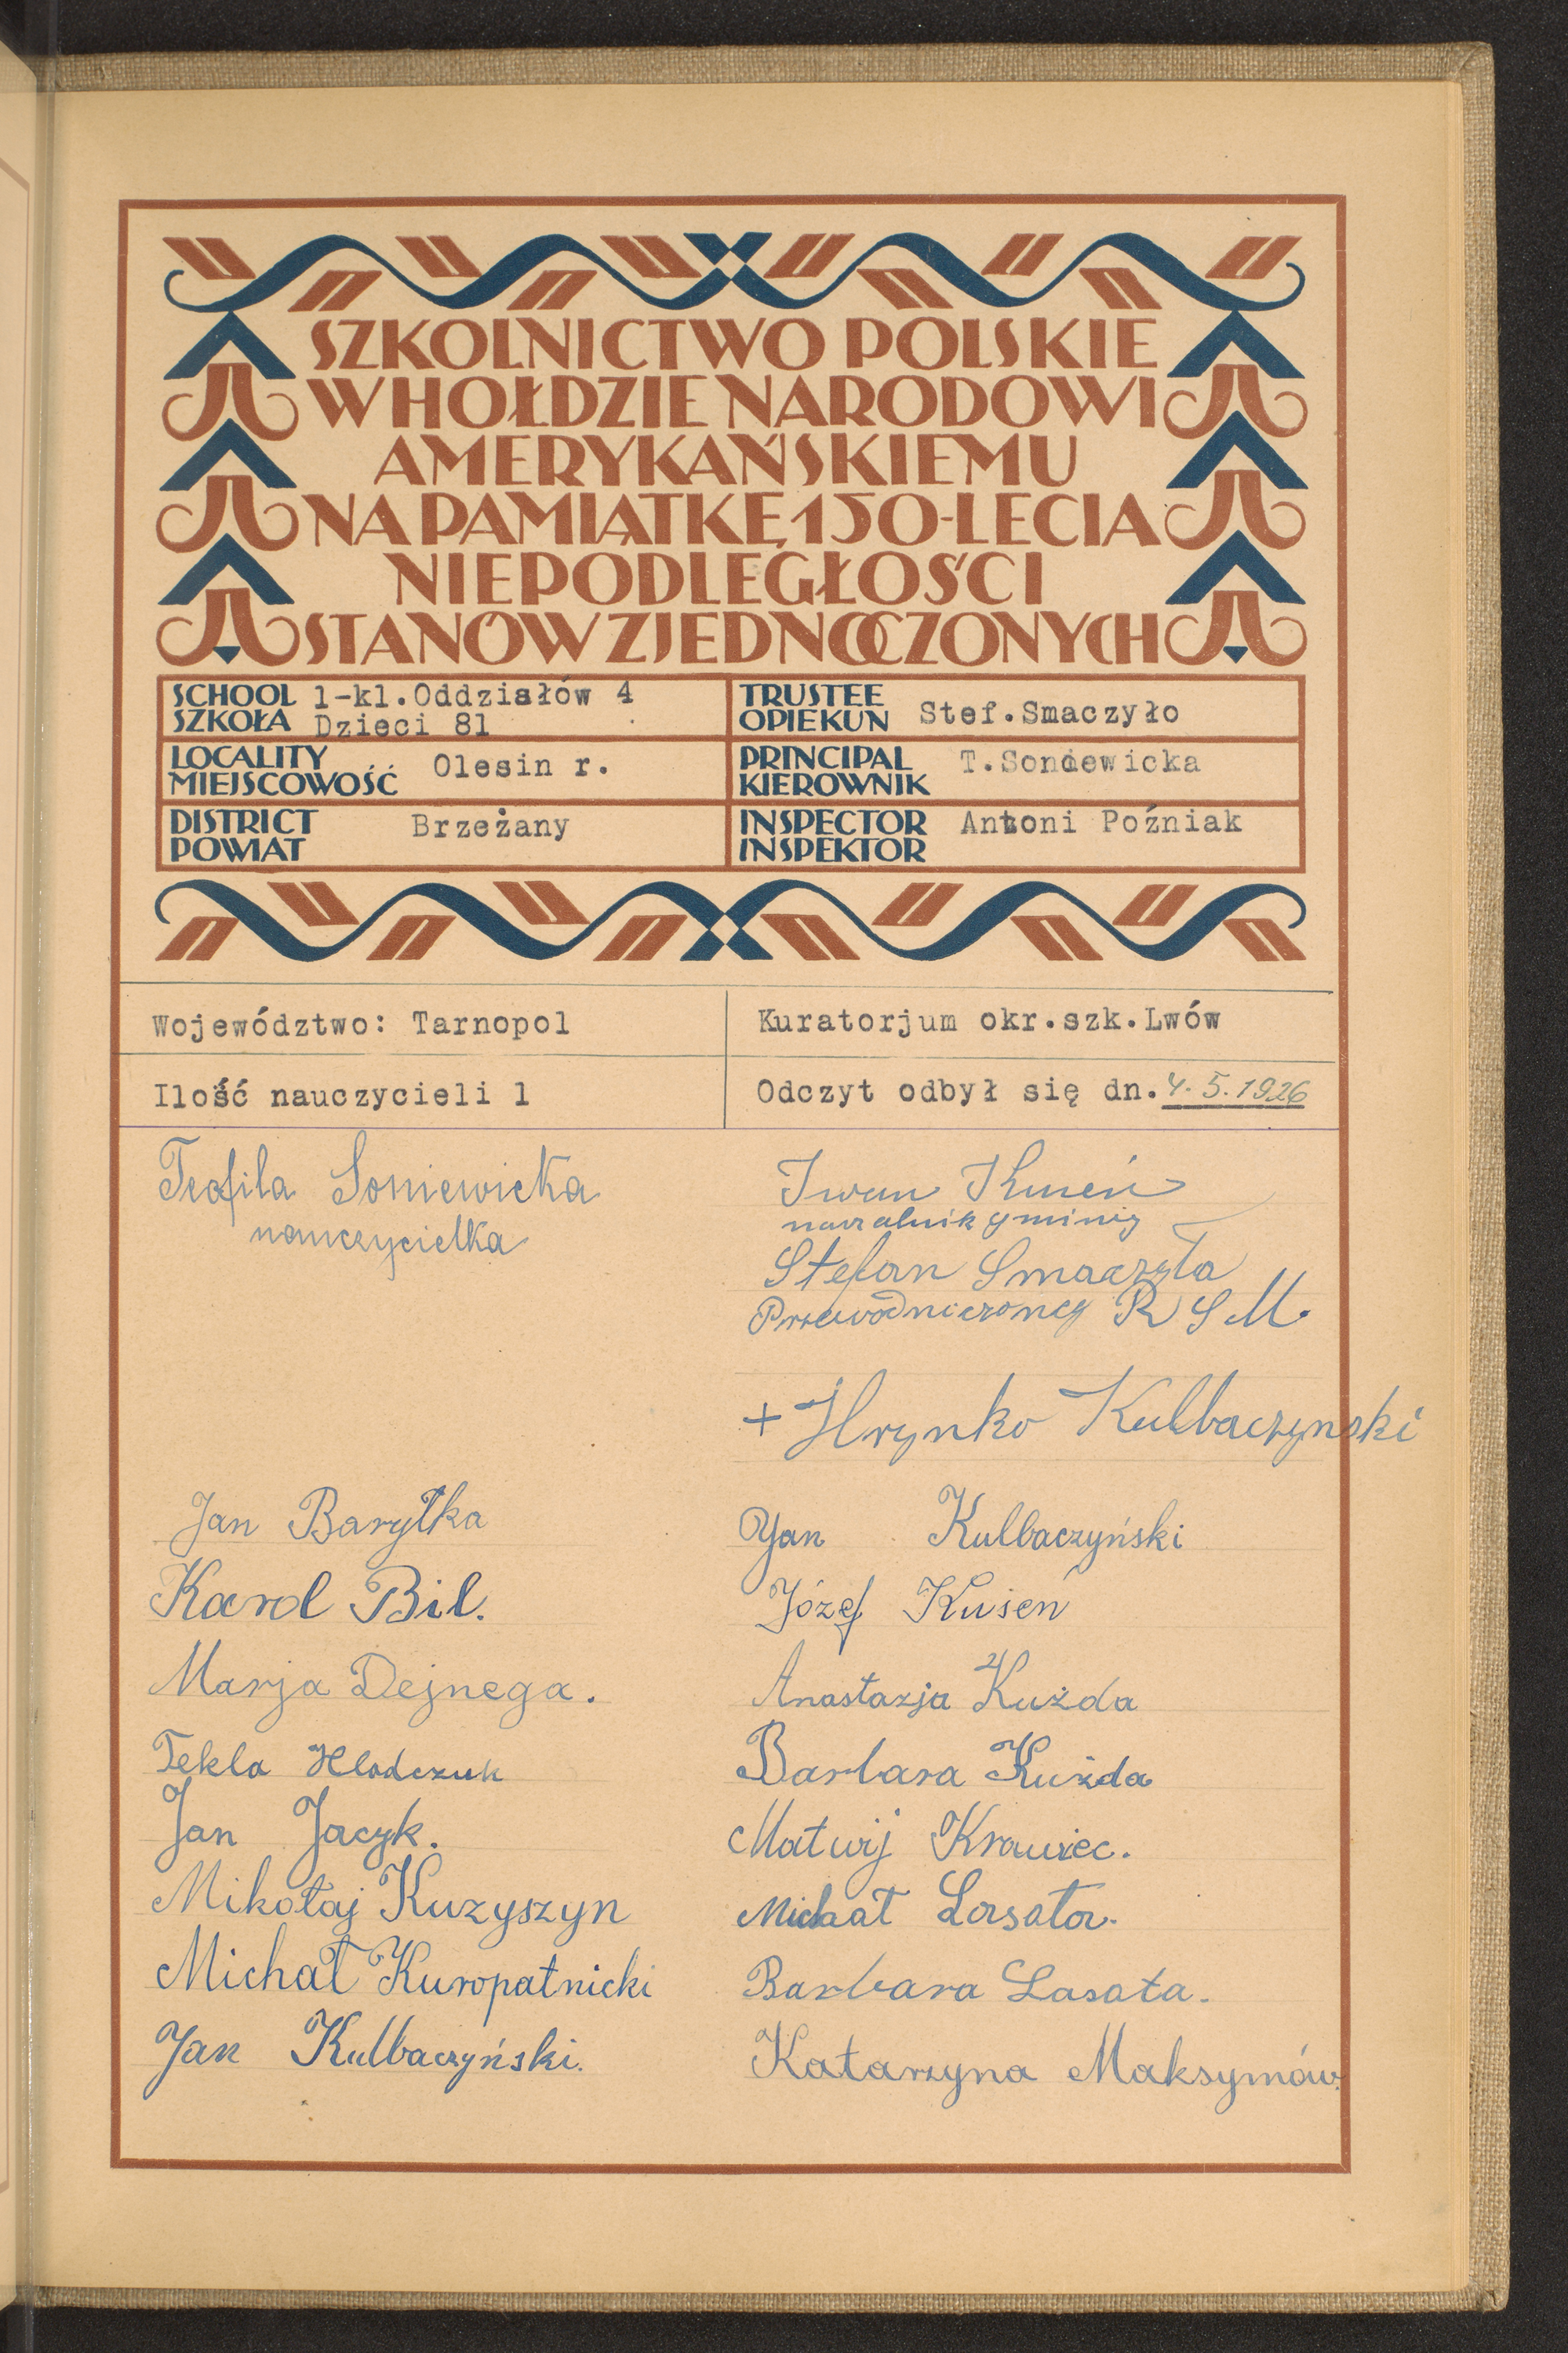 SZKOLNICTWO POLSKIE
W HOŁDZIE NARODOWI
AMERYKAŃSKIEMU
NA PAMIĄTKĘ 150-LECIA
NIEPODLEGŁOŚCI
STANÓW ZJEDNOCZONYCH
SCHOOL
SZKOŁA
1-kl.Oddziałów 4
Dzieci 81
TRUSTEE
OPIEKUN
Stef.Smaczyło
LOCALITY
MIEJSCOWOŚĆ
Olesin r.
PRINCIPAL
KIEROWNIK
T.Soniewicka
DISTRICT
POWIAT
Brzeżany
INSPECTOR
INSPEKTOR
Antoni Poźniak
Województwo: Tarnopol
Kuratorjum okr.szk.Lwów
Ilość nauczycieli 1
Odczyt odbył się dn. 4.5.1926
Teofila Soniewicka
nauczycielka
Iwan
naczalnik gminy
Stefan Smaczyła
R S M.
+ Hrynko Kulbaczynski
Jan Baryłka
Karol Bil.
Marja Dejnega.
Tekla Hladczuk
Jan Jacyk.
Mikołaj Kuzyszyn
Michał Kuropatnicki
Jan Kulbaczyński.
Jan Kulbaczyński
Józef Kuseń
Anastazja Kużda
Barbara Kużda
Matwij Krawiec.
Michał Lasota.
Barbara Lasota.
Katarzyna Maksymów.